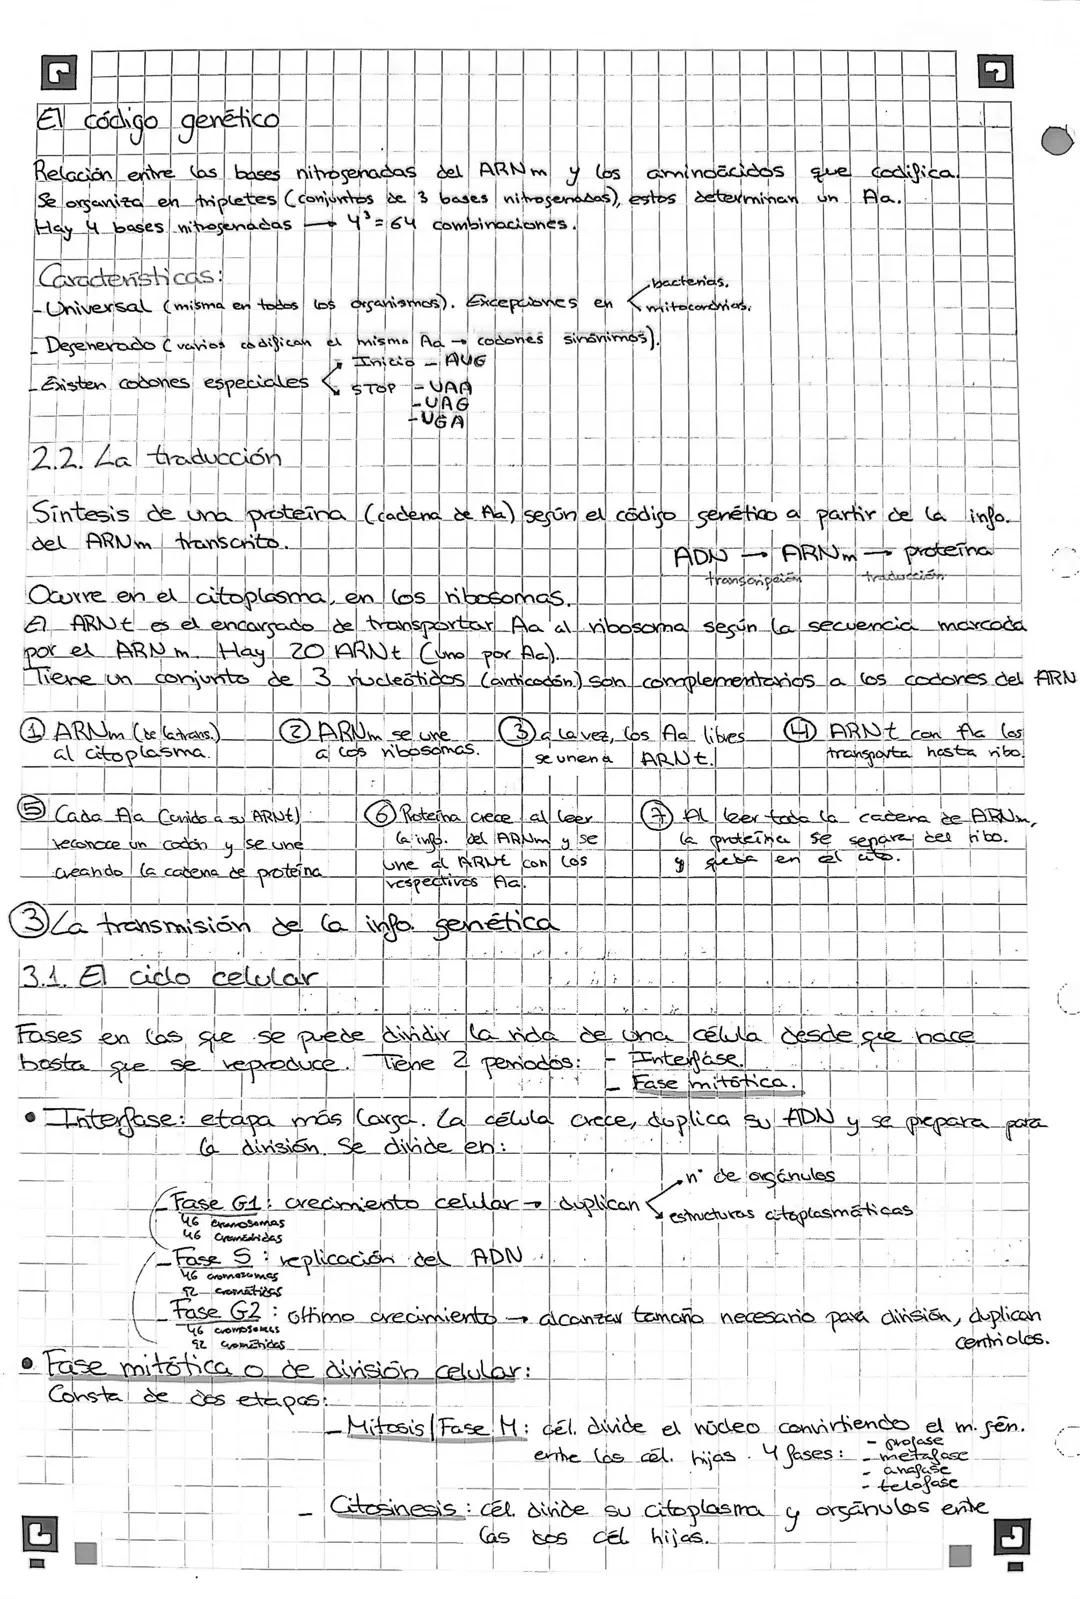 El código genético
Relación entre las bases nitrogenadas del ARNm y los aminoácidos que codifica.
Se organiza en tripletes (conjuntos de 3 bases nitrogenadas), estos determinan un Aa.
Hay 4 bases nitrogenadas → 4³ = 64 combinaciones.
Características:
- Universal (misma en todos los organismos). Excepciones en bacterias, mitocondrias.
- Degenerado (varios codifican el mismo Aa → codones sinónimos).
- Existen codones especiales
Inicio - AUG
STOP - UAA
- UAG
- UGA
2.2. La traducción
Síntesis de una proteína (cadena de Aa) según el código genético a partir de la info.
del ARNm transcrito.
ADN → ARNm → proteína
transcripción traducción
Ocurre en el citoplasma, en los ribosomas.
El ARNt es el encargado de transportar Aa al ribosoma según la secuencia marcada
por el ARNm. Hay 20 ARNt (uno por Aa).
Tiene un conjunto de 3 nucleótidos (anticodón) son complementarios a los codones del ARN
① ARNm (de la trans.)
al citoplasma.
② ARNm se une
a los ribosomas.
③ a la vez, los Aa libres
se unen a ARNt.
④ ARNt con Aa los
transporta hasta ribo.
⑤ Cada Aa (unido a su ARNt)
reconoce un codón y se une
creando la cadena de proteína
⑥ Proteína crece al leer
la info. del ARNm y se
une al ARNt con los
respectivos Aa.
⑦ Al leer toda la cadena de ARNm,
la proteína se separa del ribo.
y queda en el cito.
③ La transmisión de la info. genética
3.1. El ciclo celular
Fases en las que se puede dividir la vida de una célula desde que nace
hasta que se reproduce. Tiene 2 periodos: - Interfase.
- Fase mitótica.
• Interfase: etapa más larga. La célula crece, duplica su ADN y se prepara para
la división. Se divide en:
- Fase G1: crecimiento celular → duplican
nº de orgánulos
estructuras citoplasmáticas
46 cromosomas
46 cromátidas
- Fase S: replicación del ADN
46 cromosomas
92 cromátidas
- Fase G2: último crecimiento → alcanzar tamaño necesario para división, duplican
centriolos.
46 cromosomas
92 cromátidas
• Fase mitótica o de división celular:
Consta de dos etapas:
- Mitosis/Fase M: cél. divide el núcleo convirtiendo el m. gén.
entre las cél. hijas. 4 fases:
- profase
- metafase
- anafase
- telofase
- Citosinesis: cél. divide su citoplasma y orgánulos ente
las dos cél hijas.